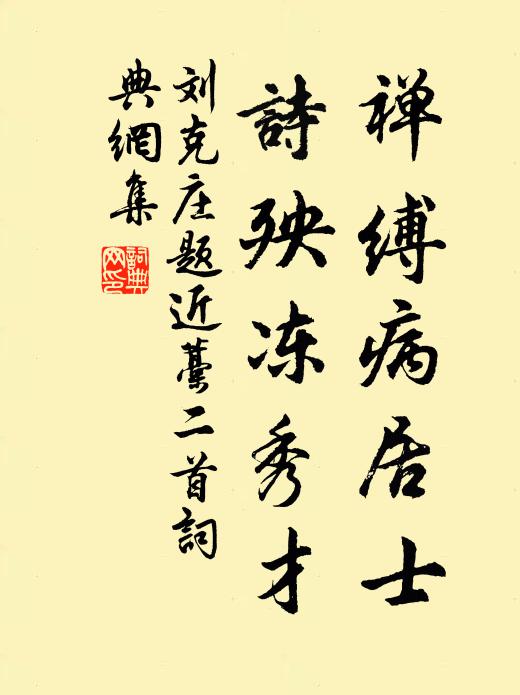 禅缚病居士
詩殃冻秀才
刘克庄题近藁二首詞
典網集
詞典
网印